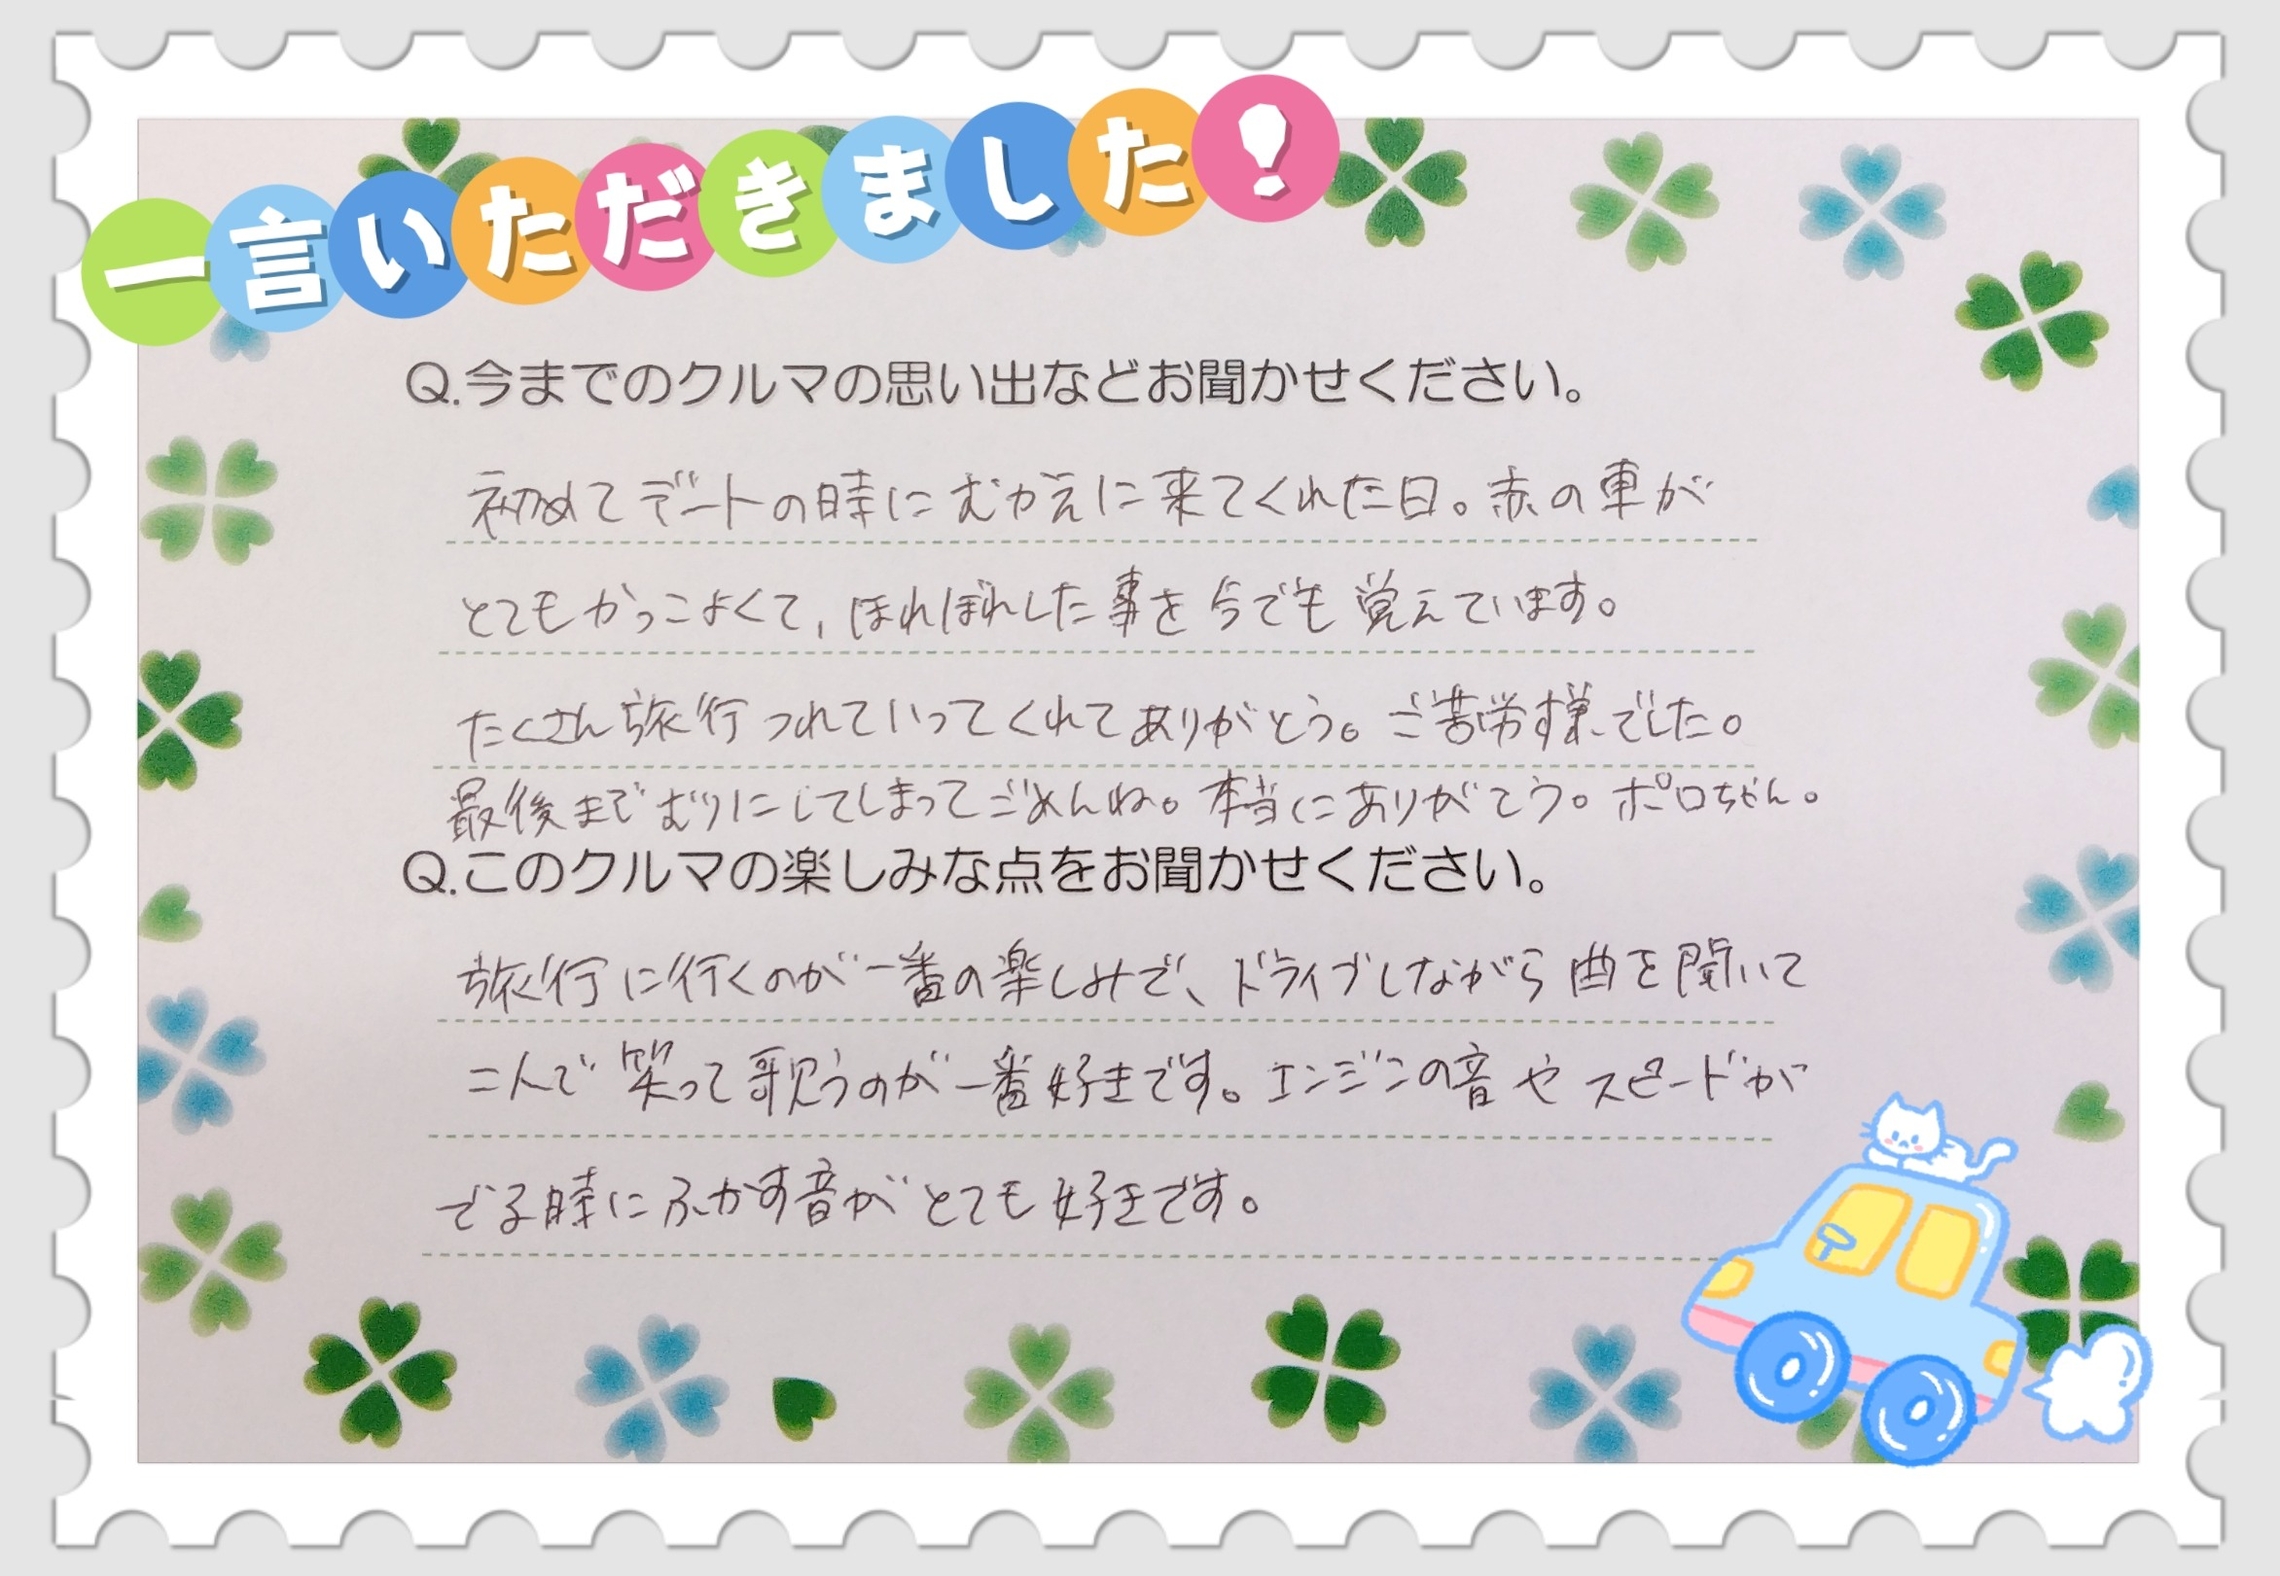 一言いただきました!
Q.今までのクルマの思い出などお聞かせください。
初めてデートの時にむかえに来てくれた日。赤の車が
とてもかっこよくて,ほれぼれした事を今でも覚えています。
たくさん旅行つれていってくれてありがとう。ご苦労様でした。
最後までむりにしてしまってごめんね。本当にありがとう。ポロちゃん。
Q.このクルマの楽しみな点をお聞かせください。
旅行に行くのが一番の楽しみで、ドライブしながら曲を聞いて
二人で笑って歌うのが一番好きです。エンジンの音やスピードが
でる時にふかす音がとても好きです。